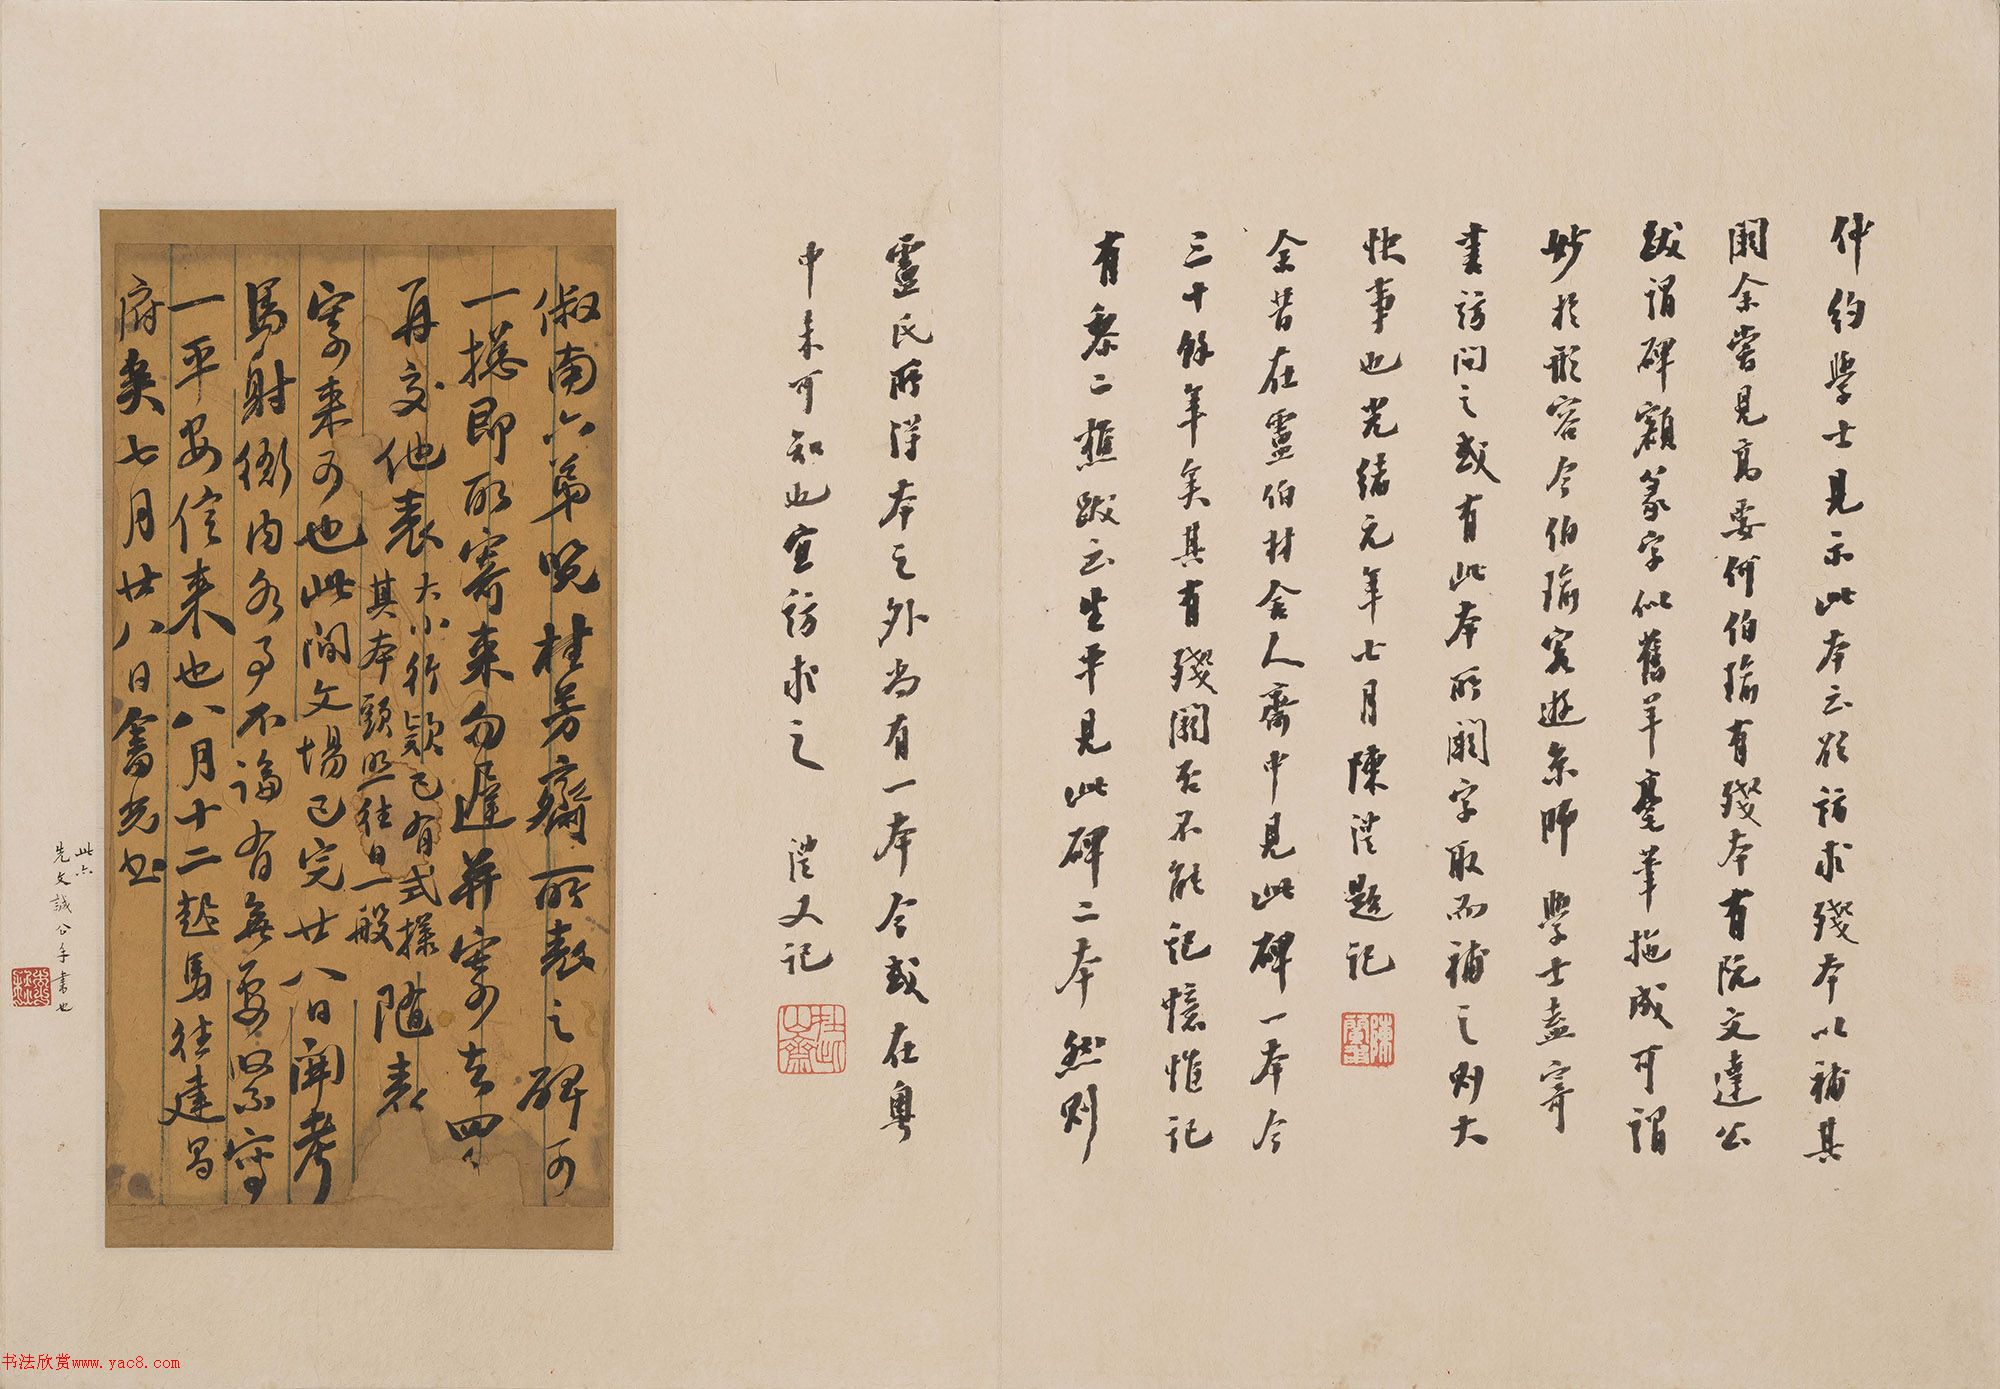 仲約學士見示此本云欲訪求殘本以補其
闕余嘗見高要何伯瑜有殘本有阮文達公
跋謂碑額篆字似舊羊毫筆拖成可謂
妙於形容今伯瑜客遊京師學士盍寄
書訪問之或有此本所闕字取而補之則大
快事也光緒元年七月陳澧題記
余昔在靈伯材舍人齋中見此碑一本今
三十餘年矣其有殘闕否不能記憶惟記
有黎二樵跋云生平見此碑二本然則
靈氏所得本之外尚有一本今或在粵
中未可知也宜訪求之 澧又記
陳蘭甫
俶南六弟哯桂芳齋所表之碑可
一搃即取寄来勿遲并寄去四
再交他表大小行欵已有式樣隨表
其本頭照往日一般
寄来可也此間文場已完廿八日開考
馬射衙内各事不論有無要緊寫
一平安信来也八月十二起馬往建昌
府矣七月廿八日畬光書
此亦
先文誠公手書也
书法欣赏www.yac8.com